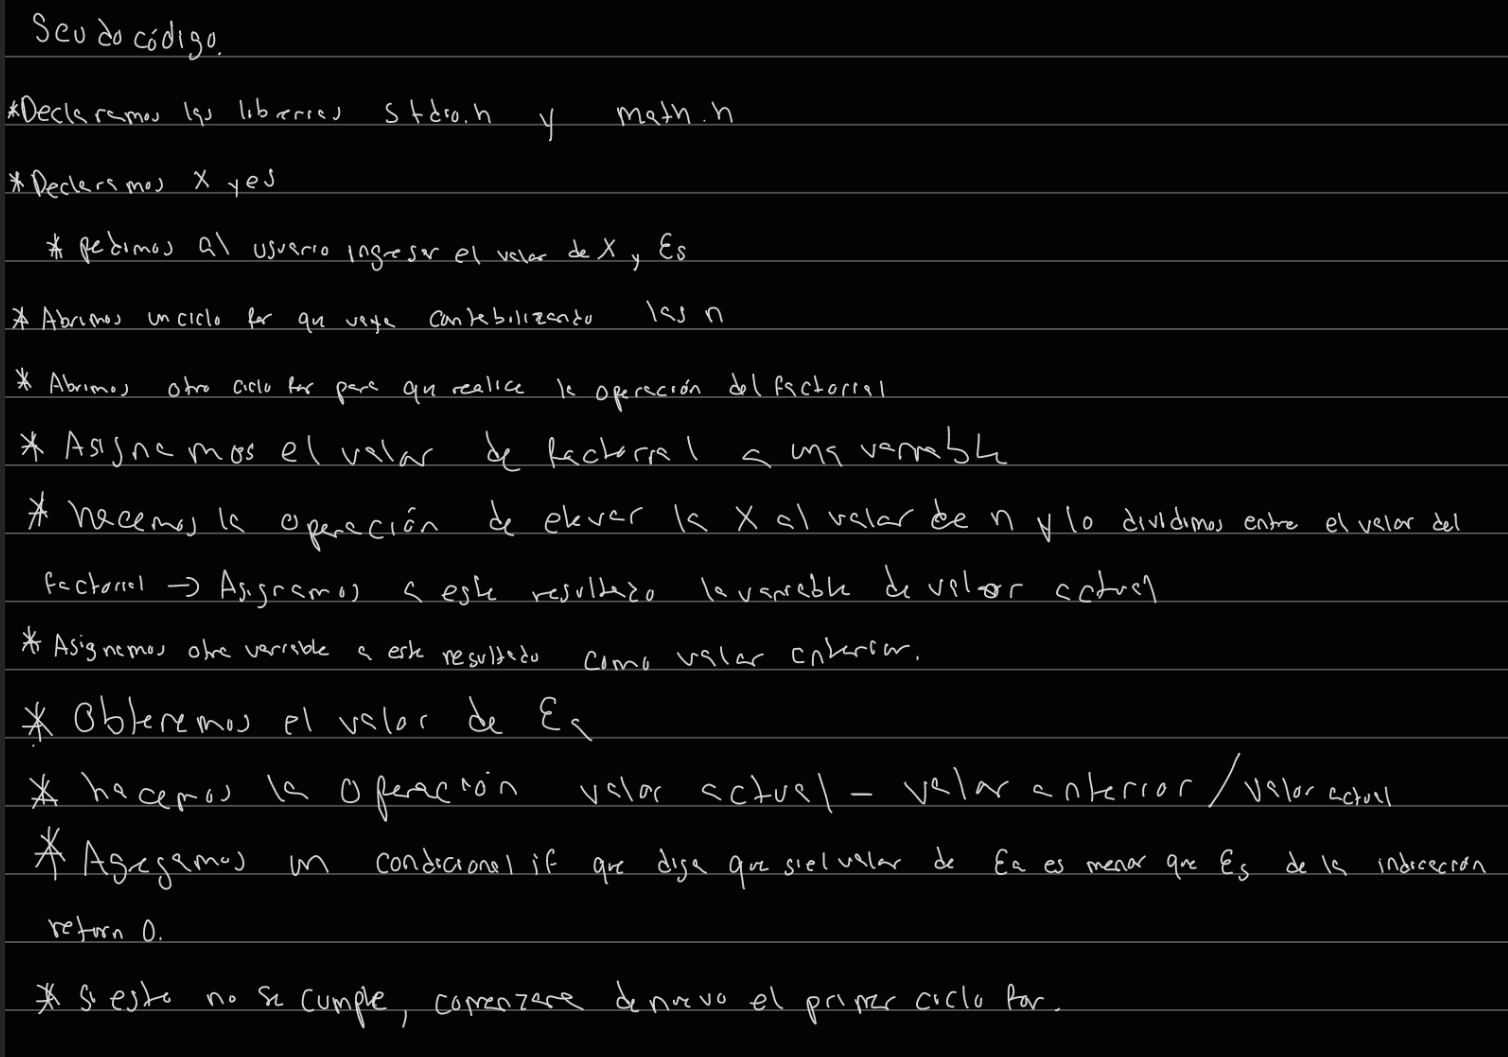 Seudo código.
*Declaramos las librerias stdio.h y math.h
* Declaramos X y es
* pedimos al usuario ingresar el valor de X y Es
* Abrimos un ciclo for que vaya contabilizando las n
* Abrimos otro ciclo for para que realice la operación del factorial
* Asignamos el valor de factorial a una variable
* hacemos la operación de elevar la X al valor de n y lo dividimos entre el valor del
factorial → Asignamos a este resultado la variable de valor actual
* Asignamos otra variable a este resultado como valor anterior.
* Obtenemos el valor de Ea
* hacemos la operación valor actual - valor anterior / valor actual
* Agregamos un condicional if que diga que si el valor de Ea es menor que Es de la indicación
return 0.
* Si esto no se cumple, comenzara de nuevo el primer ciclo for.